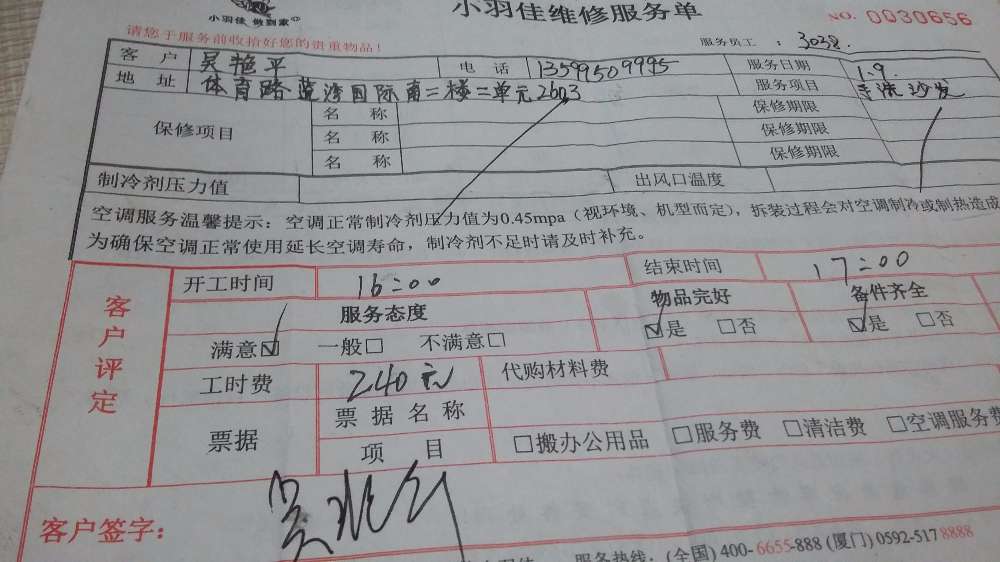 小羽佳 做到家
小羽佳维修服务单
NO. 0030656
请您于服务前收拾好您的贵重物品!
服务员工: 3038.
客户 吴艳平 电话 13599509995 服务日期 1.9.
地址 体育路蓝湾国际南二楼二单元2603 服务项目 沙发
保修项目 名称 保修期限
名称 保修期限
名称 保修期限
制冷剂压力值 出风口温度
空调服务温馨提示: 空调正常制冷剂压力值为0.45mpa(视环境、机型而定), 拆装过程会对空调制冷或制热造成
为确保空调正常使用延长空调寿命, 制冷剂不足时请及时补充。
客户评定
开工时间 16:00 结束时间 17:00
服务态度 物品完好 备件齐全
满意☑ 一般□ 不满意□ ☑是 □否 ☑是 □否
工时费 240元 代购材料费
票据 票据名称
项目 □搬办公用品 □服务费 □清洁费 □空调服务费
客户签字:
服务热线: (全国) 400-6655-888 (厦门) 0592-5178888